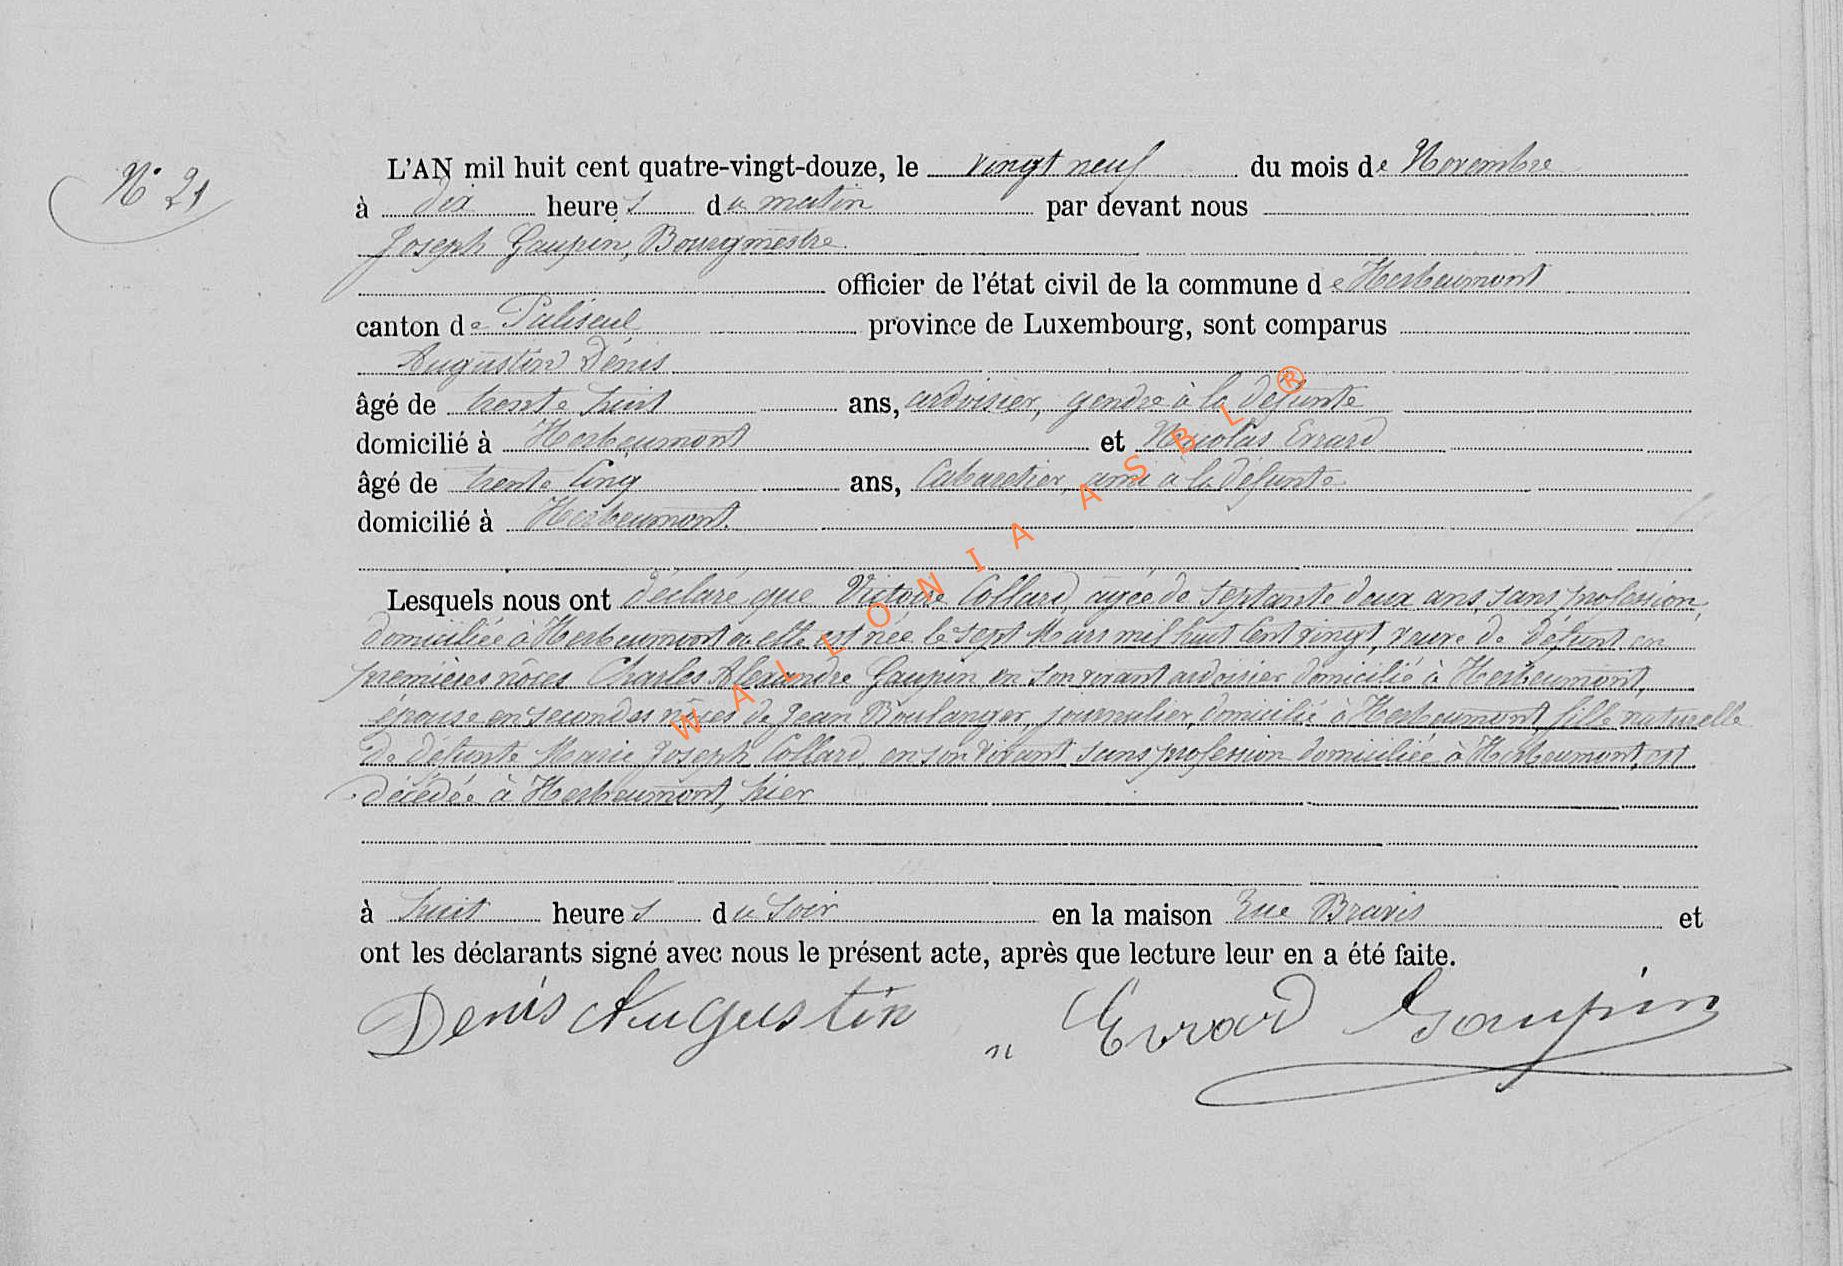 N° 21
L'AN mil huit cent quatre-vingt-douze, le vingt neuf du mois de Novembre
à dix heures du matin par devant nous
Joseph Gaupin, Bourgmestre
officier de l'état civil de la commune de Herbeumont
canton de Paliseul province de Luxembourg, sont comparus
Augustin Denis
âgé de trente huit ans, ardoisier, gendre à la défunte
domicilié à Herbeumont et Nicolas Errard
âgé de trente cinq ans, Cabaretier, ami à la défunte
domicilié à Herbeumont.
Lesquels nous ont déclaré que Victoire Collard, âgée de septante deux ans, sans profession,
domiciliée à Herbeumont où elle est née le sept Mars mil huit cent vingt, veuve de défunt en
premières nôces Charles Alexandre Gaupin, en son vivant ardoisier domicilié à Herbeumont,
épouse en secondes nôces de Jean Boulanger, journalier, domicilié à Herbeumont, fille naturelle
de défunte Marie Joseph Collard, en son vivant sans profession domiciliée à Herbeumont, est
décédée à Herbeumont, hier
à huit heures du soir en la maison Rue Bravis et
ont les déclarants signé avec nous le présent acte, après que lecture leur en a été faite.
Denis Augustin n Errard Gaupin
WALLONIA ASBL ®